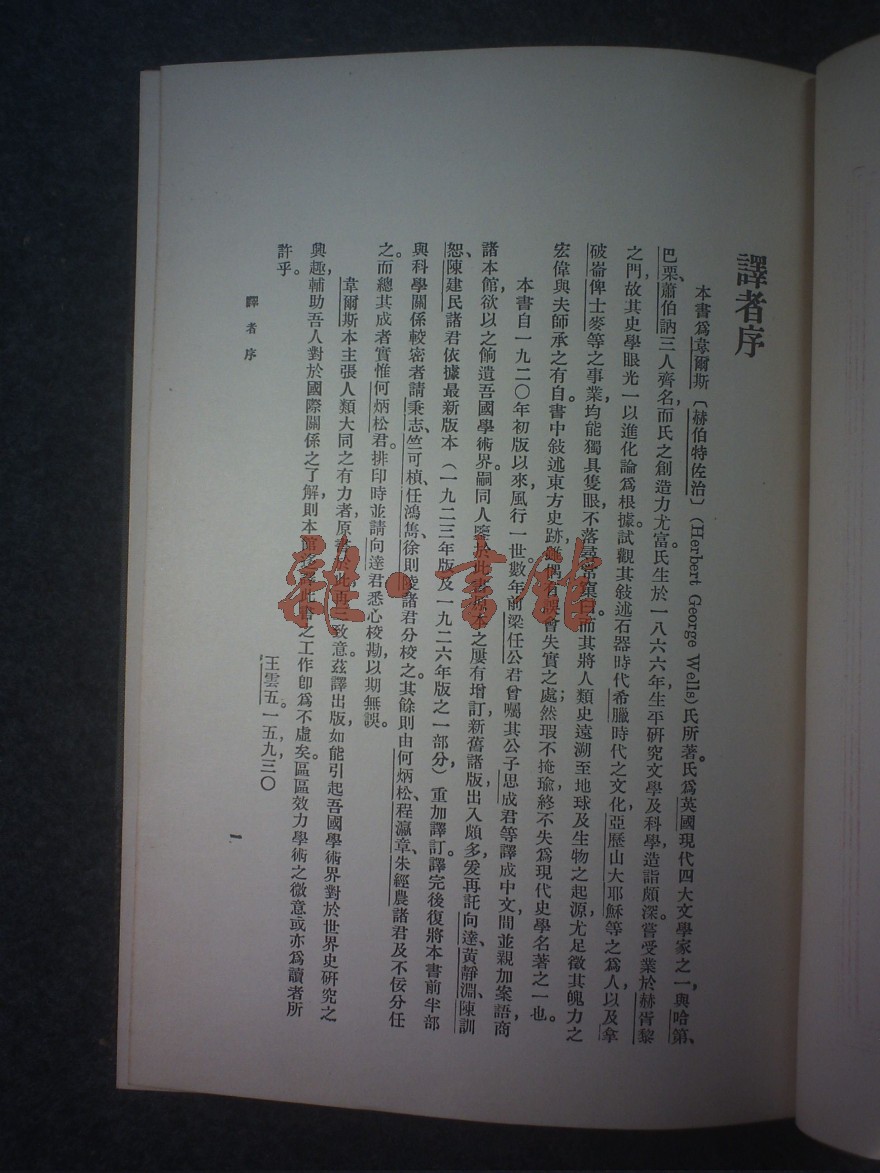 譯者序
本書爲韋爾斯〔赫伯特佐治〕(Herbert George Wells)氏所著。氏爲英國現代四大文學家之一,與哈第、
巴栗、蕭伯訥三人齊名,而氏之創造力尤富。氏生於一八六六年,生平研究文學及科學,造詣頗深。嘗受業於赫胥黎
之門,故其史學眼光一以進化論爲根據。試觀其敍述石器時代希臘時代之文化,亞歷山大耶穌等之爲人以及拿
破崙俾士麥等之事業,均能獨具隻眼,不落尋常窠臼。而其將人類史遠溯至地球及生物之起源,尤足徵其魄力之
宏偉與夫師承之有自。書中敍述東方史跡,雖偶有誤會失實之處;然瑕不掩瑜,終不失爲現代史學名著之一也。
本書自一九二〇年初版以來,風行一世。數年前梁任公君曾囑其公子思成君等譯成中文,間並親加案語,商
諸本館欲以之餉遺吾國學術界。嗣同人鑒於此書原本之屢有增訂,新舊諸版出入頗多,爰再託向達、黃靜淵、陳訓
恕、陳建民諸君依據最新版本(一九二三年版及一九二六年版之一部分)重加譯訂。譯完後復將本書前半部
與科學關係較密者請秉志、竺可楨、任鴻雋、徐則陵諸君分校之。其餘則由何炳松、程瀛章、朱經農諸君及不佞分任
之。而總其成者實惟何炳松君。排印時並請向達君悉心校勘,以期無誤。
韋爾斯本主張人類大同之有力者,原書於此再三致意。茲譯出版,如能引起吾國學術界對於世界史研究之
興趣,輔助吾人對於國際關係之了解,則本館移譯此書之工作卽爲不虛矣。區區效力學術之微意或亦爲讀者所
許乎。
王雲五。一,五,一九三〇
譯者序
一
雜·書館